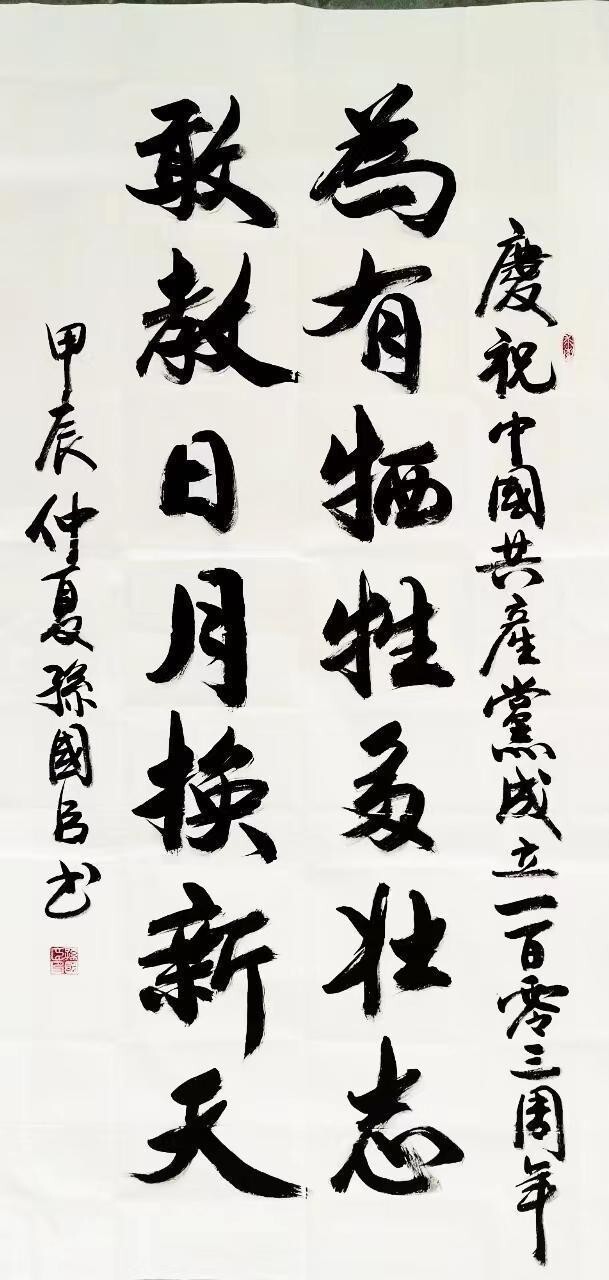 慶祝中國共產黨成立一百零三周年
為有牺牲多壯志
敢教日月换新天
甲辰仲夏孫國臣书